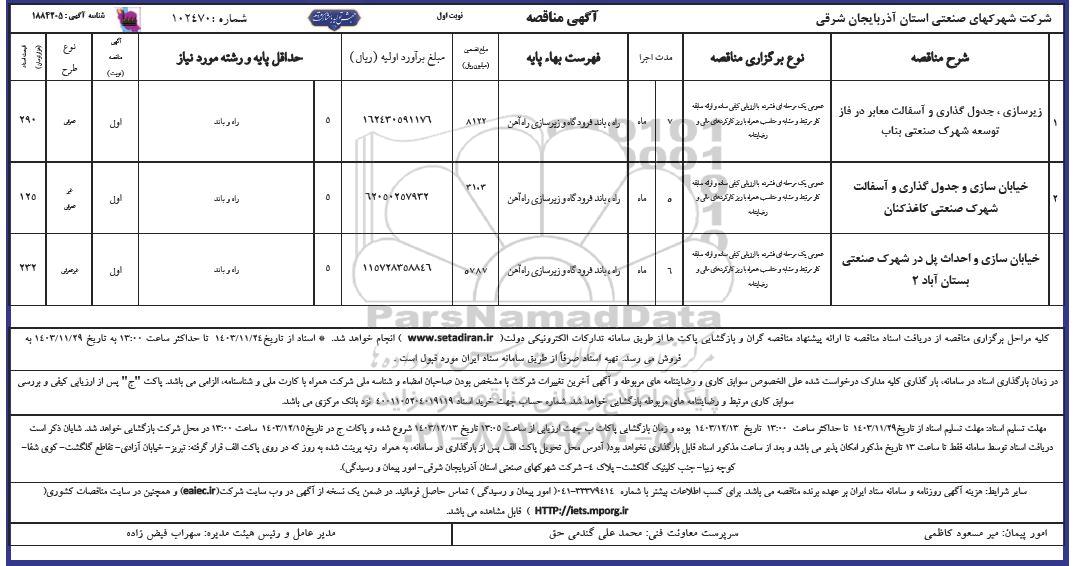 شرکت شهرکهای صنعتی استان آذربایجان شرقی
آگهی مناقصه
نوبت اول
شماره : ۱۰۲۴۷۰
شناسه آگهی : ۱۸۸۴۲۰۵
شرح مناقصه
نوع برگزاری مناقصه
مدت اجرا
فهرست بهاء پایه
مبلغ تضمین (میلیون ریال)
مبلغ برآورد اولیه (ریال)
حداقل پایه و رشته مورد نیاز
آگهی مناقصه (نوبت)
نوع طرح
۱
زیرسازی ، جدول گذاری و آسفالت معابر در فاز
توسعه شهرک صنعتی بناب
عمومی یک مرحله ای فشرده با ارزیابی کیفی ساده و ارائه سابقه
کار مرتبط و مشابه و مناسب همراه با ریز کارکردهای مالی و
رضایتنامه
۷ ماه
راه ، باند فرودگاه و زیرسازی راه آهن
۸۱۲۲
۱۶۲۴۳۰۵۹۱۱۷۶
۵
راه و باند
اول
عمرانی
۲۹۰
۲
خیابان سازی و جدول گذاری و آسفالت
شهرک صنعتی کاغذکنان
عمومی یک مرحله ای فشرده با ارزیابی کیفی ساده و ارائه سابقه
کار مرتبط و مشابه و مناسب همراه با ریز کارکردهای مالی و
رضایتنامه
۵ ماه
راه ، باند فرودگاه و زیرسازی راه آهن
۳۱۰۳
۶۲۰۵۰۲۵۷۹۳۲
۵
راه و باند
اول
غیر
عمرانی
۱۲۵
خیابان سازی و احداث پل در شهرک صنعتی
بستان آباد ۲
عمومی یک مرحله ای فشرده با ارزیابی کیفی ساده و ارائه سابقه
کار مرتبط و مشابه و مناسب همراه با ریز کارکردهای مالی و
رضایتنامه
۶ ماه
راه ، باند فرودگاه و زیرسازی راه آهن
۵۷۸۷
۱۱۵۷۲۸۳۵۸۸۴۶
۵
راه و باند
اول
غیرعمرانی
۲۳۲
ParsNamadData
کلیه مراحل برگزاری مناقصه از دریافت اسناد مناقصه تا ارائه پیشنهاد مناقصه گران و بازگشایی پاکت ها از طریق سامانه تدارکات الکترونیکی دولت( www.setadiran.ir ) انجام خواهد شد. * اسناد از تاریخ ۱۴۰۳/۱۱/۲۴ تا حداکثر ساعت ۱۳:۰۰ به تاریخ ۱۴۰۳/۱۱/۲۹ به
فروش می رسد. تهیه اسناد صرفاً از طریق سامانه ستاد ایران مورد قبول است .
در زمان بارگذاری اسناد در سامانه، بار گذاری کلیه مدارک درخواست شده علی الخصوص سوابق کاری و رضایتنامه های مربوطه و آگهی آخرین تغییرات شرکت با مشخص بودن صاحبان امضاء و شناسه ملی شرکت همراه با کارت ملی و شناسنامه، الزامی می باشد. پاکت "ج" پس از ارزیابی کیفی و بررسی
سوابق کاری مرتبط و رضایتنامه های مربوطه بازگشایی خواهد شد. شماره حساب جهت خرید اسناد ۴۰۰۱۱۰۵۲۰۴۰۱۹۱۱۹ نزد بانک مرکزی می باشد.
مهلت تسلیم اسناد: مهلت تسلیم اسناد از تاریخ ۱۴۰۳/۱۱/۲۹ تا حداکثر ساعت ۱۳:۰۰ تاریخ ۱۴۰۳/۱۲/۱۳ بوده و زمان بازگشایی پاکات ب جهت ارزیابی از ساعت ۱۳:۰۵ تاریخ ۱۴۰۳/۱۲/۱۳ شروع شده و پاکات ج در تاریخ ۱۴۰۳/۱۲/۱۵ ساعت ۱۳:۰۰ در محل شرکت بازگشایی خواهد شد. شایان ذکر است
دریافت اسناد توسط سامانه فقط تا ساعت ۱۳ تاریخ مذکور امکان پذیر می باشد و بعد از ساعت مذکور اسناد قابل بارگذاری نخواهد بود( آدرس محل تحویل پاکت الف پس از بارگذاری در سامانه، به همراه رتبه پرینت شده به روز که در روی پاکت الف قرار گرفته: تبریز- خیابان آزادی- تقاطع گلگشت- کوی شفا-
کوچه زیبا- جنب کلینیک گلگشت- پلاک ۴- شرکت شهرکهای صنعتی استان آذربایجان شرقی- امور پیمان و رسیدگی).
سایر شرایط: هزینه آگهی روزنامه و سامانه ستاد ایران بر عهده برنده مناقصه می باشد. برای کسب اطلاعات بیشتر با شماره ۰۴۱-۳۳۳۷۹۴۱۴( امور پیمان و رسیدگی ) تماس حاصل فرمائید. در ضمن یک نسخه از آگهی در وب سایت شرکت(eaiec.ir) و همچنین در سایت مناقصات کشوری(
HTTP://iets.mporg.ir ) قابل مشاهده می باشد.
امور پیمان: میر مسعود کاظمی
سرپرست معاونت فنی: محمد علی گندمی حق
مدیر عامل و رئیس هیئت مدیره: سهراب فیض زاده